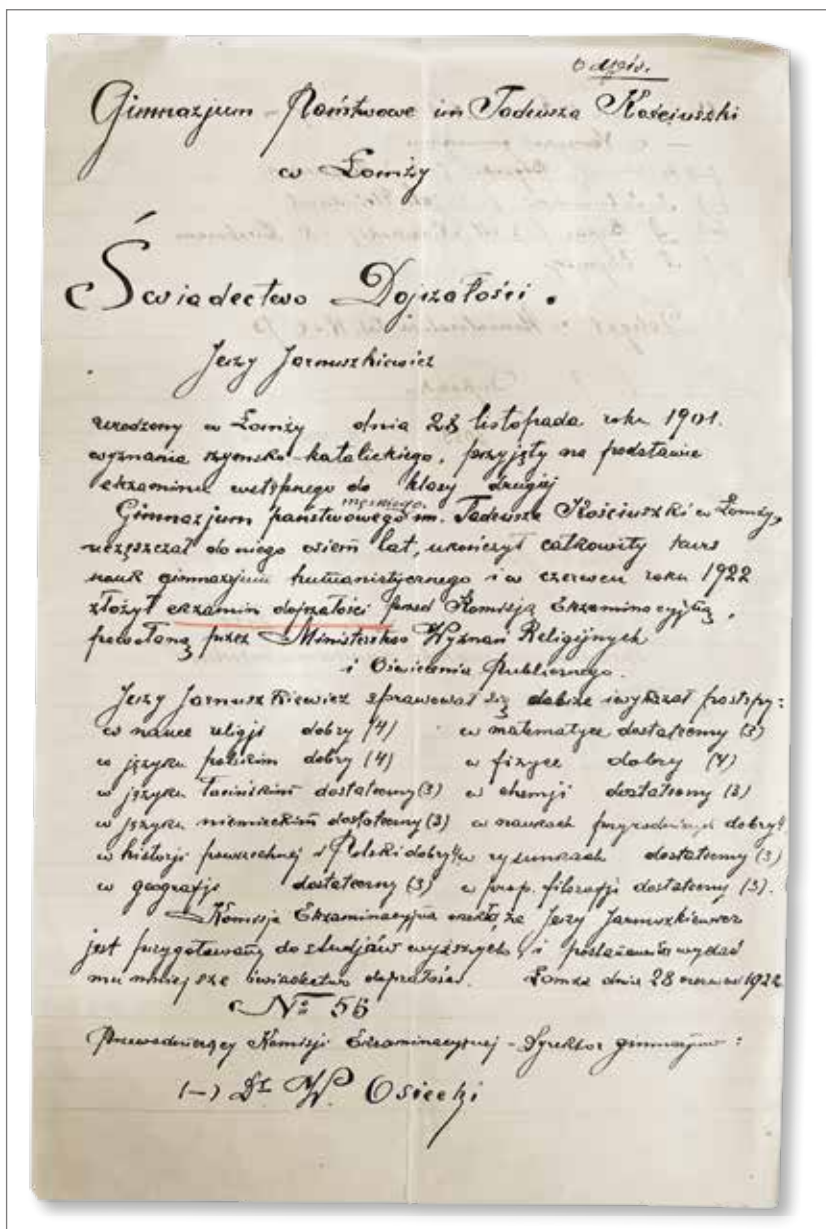 Odpis.
Gimnazjum Państwowe im Tadeusza Kościuszki
w Łomży
Świadectwo Dojrzałości.
Jerzy Jarnuszkiewicz
urodzony w Łomży dnia 28 listopada roku 1901.
wyznania rzymsko-katolickiego, przyjęty na podstawie
egzaminu wstępnego do klasy drugiej
męskiego
Gimnazjum państwowego im. Tadeusza Kościuszki w Łomży,
uczęszczał do niego osiem lat, ukończył całkowity kurs
nauk gimnazjum humanistycznego i w czerwcu roku 1922
złożył egzamin dojrzałości przed Komisją Egzaminacyjną,
powołaną przez Ministerstwo Wyznań Religijnych
i Oświecenia Publicznego.
Jerzy Jarnuszkiewicz sprawował się dobrze i wykazał postępy:
w nauce religji dobry (4) w matematyce dostateczny (3)
w języku polskim dobry (4) w fizyce dobry (4)
w języku łacińskim dostateczny (3) w chemji dostateczny (3)
w języku niemieckim dostateczny (3) w naukach przyrodniczych dobry 4
w historji powszechnej i Polski dobry 4 w rysunkach dostateczny (3)
w geografji dostateczny (3) w prop. filozofji dostateczny (3).
Komisja Egzaminacyjna orzekła, że Jerzy Jarnuszkiewicz
jest przygotowany do studjów wyższych i postanowiła wydać
mu niniejsze świadectwo dojrzałości. Łomża dnia 28 czerwca 1922
№ 56
Przewodniczący Komisji Egzaminacyjnej - Dyrektor gimnazjum:
(-) Dr W. Osiecki